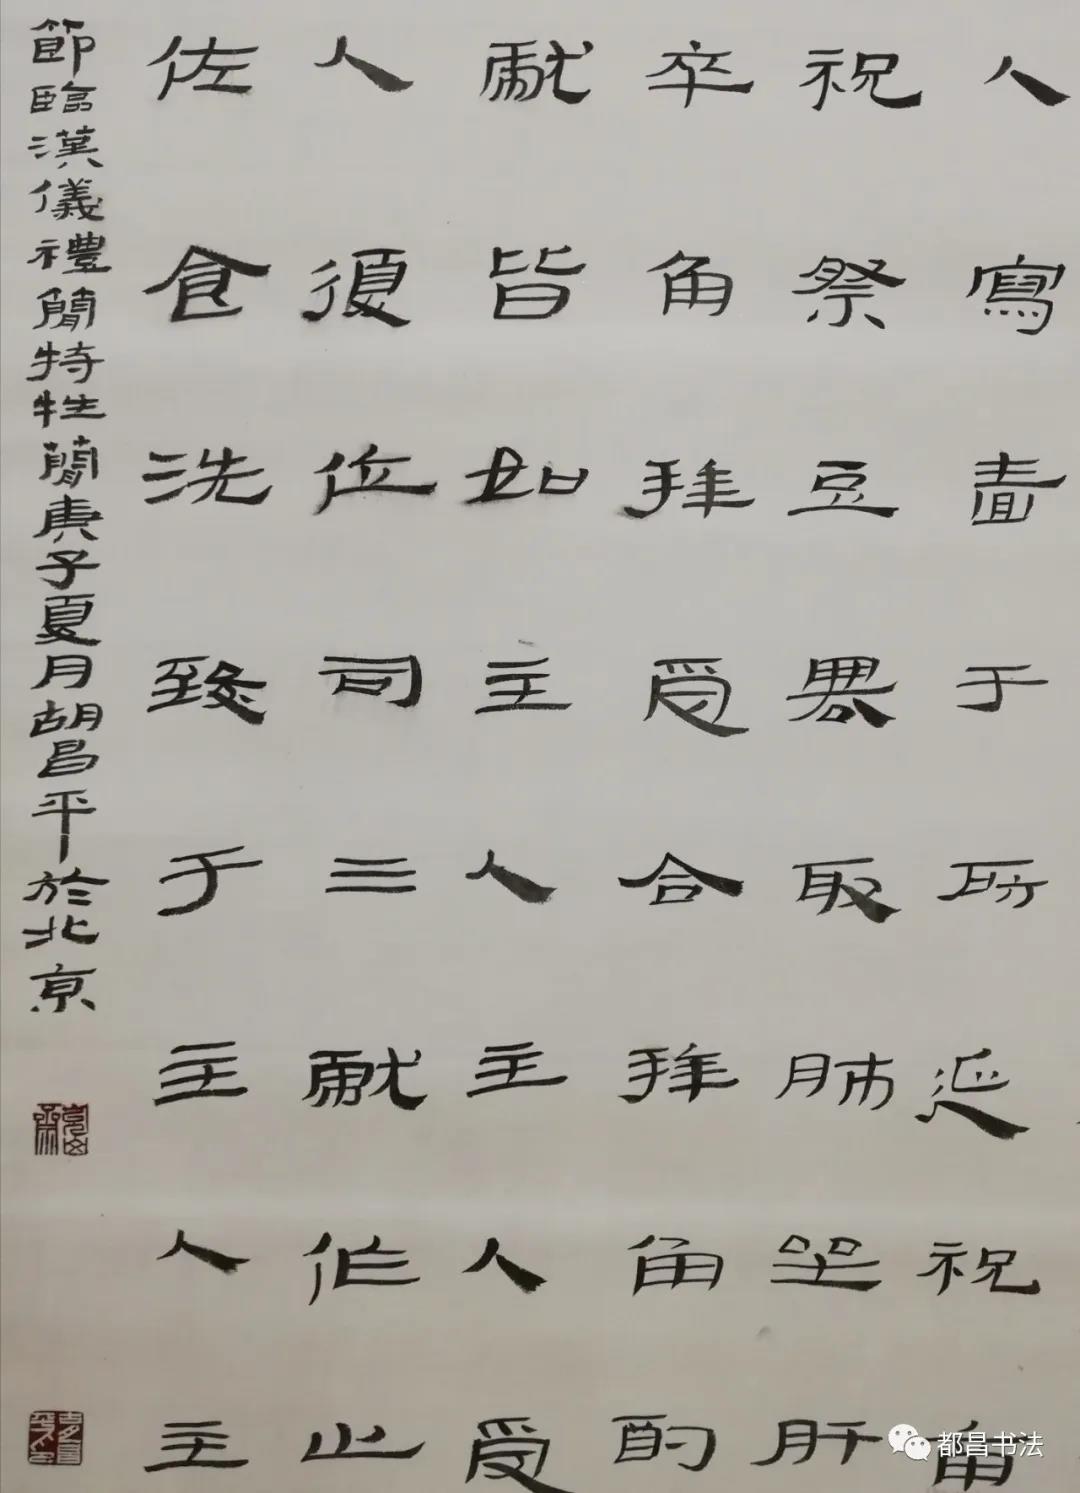 人寫嗇于房延祝南
祝祭豆取肺坐肝
卒角拜受合拜角酌
獻皆如主人主人受
人復位司三獻作止
佐食洗致于主人主
節臨漢儀禮簡特牲簡庚子夏月胡昌平於北京
都昌书法